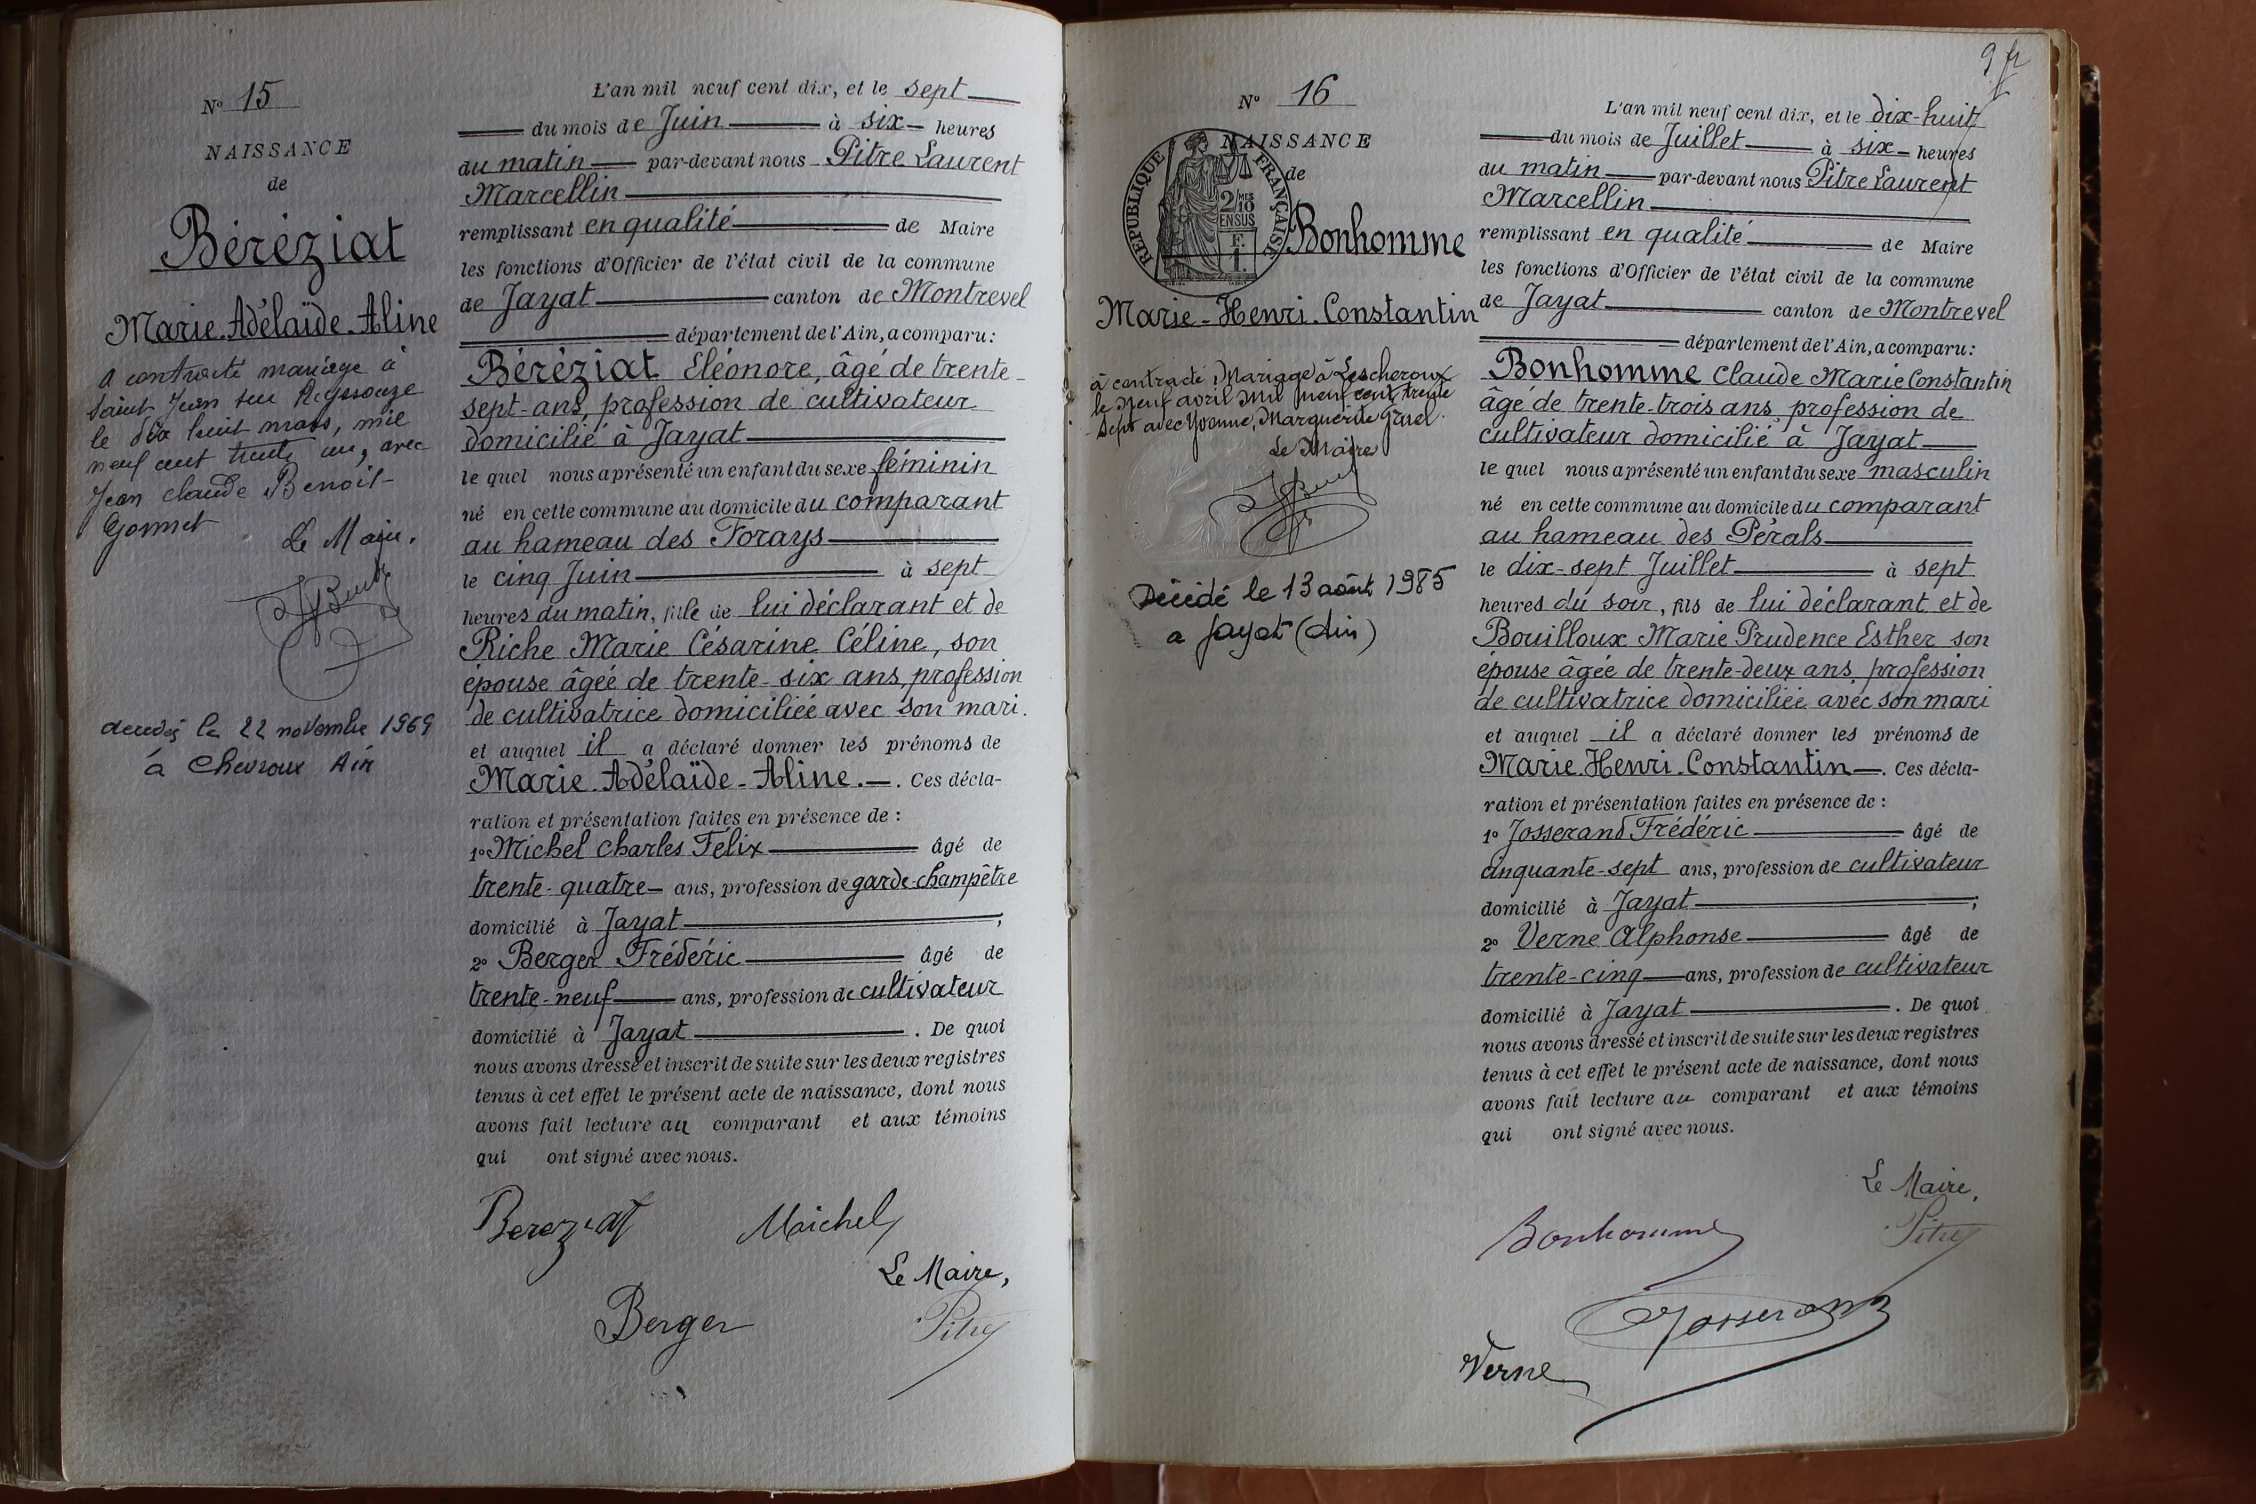 Nº 15
NAISSANCE
de
Béréziat
Marie-Adélaïde-Aline
A contracté mariage à
Saint Jean sur Reyssouze
le dix huit mars, mil
neuf cent trente un, avec
Jean Claude Benoît
Gonnet
Le Maire.
decedés le 22 novembre 1969
à Chevroux Ain
L'an mil neuf cent dix, et le sept
du mois de Juin à six heures
du matin par-devant nous Pitre Laurent
Marcellin
remplissant en qualité de Maire
les fonctions d'Officier de l'état civil de la commune
de Jayat canton de Montrevel
département de l'Ain, a comparu:
Béréziat Eléonore, âgé de trente-
sept-ans, profession de cultivateur
domicilié à Jayat
le quel nous a présenté un enfant du sexe féminin
né en cette commune au domicile du comparant
au hameau des Forays
le cinq Juin à sept
heures du matin, fille de lui déclarant et de
Riche Marie Césarine Céline, son
épouse âgée de trente-six ans, profession
de cultivatrice domiciliée avec son mari.
et auquel il a déclaré donner les prénoms de
Marie-Adélaïde-Aline.—. Ces décla-
ration et présentation faites en présence de :
1º Michel Charles Félix âgé de
trente-quatre ans, profession de garde-champêtre
domicilié à Jayat ;
2º Berger Frédéric âgé de
trente-neuf ans, profession de cultivateur
domicilié à Jayat . De quoi
nous avons dressé et inscrit de suite sur les deux registres
tenus à cet effet le présent acte de naissance, dont nous
avons fait lecture au comparant et aux témoins
qui ont signé avec nous.
Bereziat Michel
Le Maire,
Berger Pitre
9
Nº 16
NAISSANCE
de
RÉPUBLIQUE FRANÇAISE
2/MES
10
EN SUS
Bonhomme
Marie-Henri-Constantin
à contracté Mariage à Lescheroux
le Neuf avril Mil Neuf cent trente
Sept avec Yvonne, Marguerite Gruel.
Le Maire
Décédé le 13 août 1985
a Jayat (Ain)
L'an mil neuf cent dix, et le dix-huit
du mois de Juillet à six heures
du matin par-devant nous Pitre Laurent
Marcellin
remplissant en qualité de Maire
les fonctions d'Officier de l'état civil de la commune
de Jayat canton de Montrevel
département de l'Ain, a comparu:
Bonhomme Claude Marie Constantin
âgé de trente-trois ans, profession de
cultivateur domicilié à Jayat
le quel nous a présenté un enfant du sexe masculin
né en cette commune au domicile du comparant
au hameau des Pérals
le dix-sept Juillet à sept
heures du soir, fils de lui déclarant et de
Bouilloux Marie Prudence Esther son
épouse âgée de trente-deux ans, profession
de cultivatrice domiciliée avec son mari
et auquel il a déclaré donner les prénoms de
Marie-Henri-Constantin—. Ces décla-
ration et présentation faites en présence de :
1º Josserand Frédéric âgé de
cinquante-sept ans, profession de cultivateur
domicilié à Jayat ;
2º Verne Alphonse âgé de
trente-cinq ans, profession de cultivateur
domicilié à Jayat . De quoi
nous avons dressé et inscrit de suite sur les deux registres
tenus à cet effet le présent acte de naissance, dont nous
avons fait lecture au comparant et aux témoins
qui ont signé avec nous.
Le Maire,
Bonhomme Pitre
Josserand
Verne